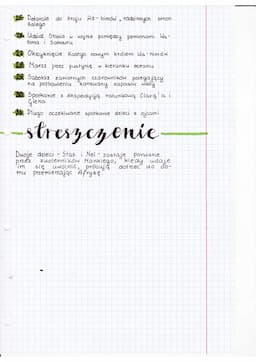 Dotarcie do kraju Wa-himów, rodzinnych stron
Kalego
Udział Stasia w wojnie pomiędzy plemionami Wa-
hima i Samburu
Okrzyknięcie Kalego nowym królem Wa-himów
Marsz przez pustynię w kierunku oceanu
Sabotaż czarowników polegający
na przecięciu zapasów wody
Spotkanie z ekspedycją ratunkową Clary'ego i
Glena
Długo oczekiwane spotkanie dzieci z ojcami
streszczenie
Dwoje dzieci - Staś i Nel - zostaje porwane
przez zwolenników Mahdiego, kiedy udaje
im się uwolnić, próbują dotrzeć do do-
mu przemierzając Afrykę.